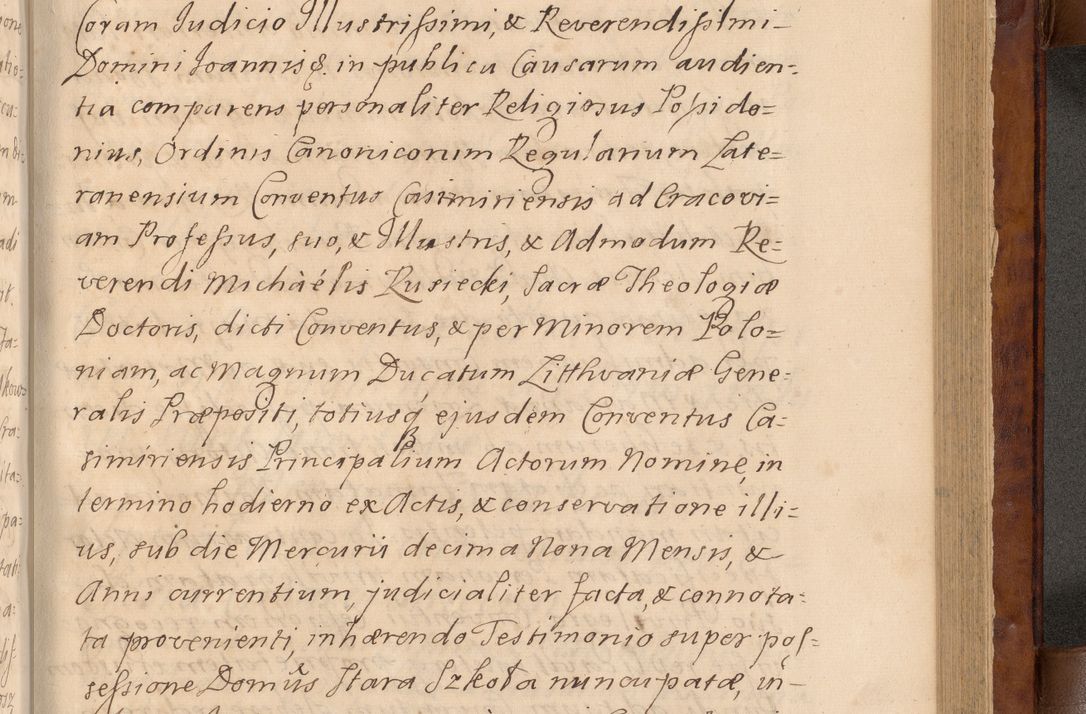 Coram Iudicio Illustrissimi, & Reverendissimi-
Domini Ioannis &. in publica Causarum audien-
tia comparens personaliter Religiosus Possido=
nius, Ordinis Canonicorum Regularium Late=
ranensium Conventus Casimiriensis ad Cracovi=
am Professus, suo, & Illustris, & Admodum Re=
verendi Michaélis Rusiecki, Sacræ Theologiæ
Doctoris, dicti Conventus, & per Minorem Polo=
niam, ac Magnum Ducatum Litthvaniæ Gene=
ralis Præpositi, totiusq́ ejusdem Conventus Ca=
simiriensis Principalium Actorum Nomine, in
termino hodierno ex Actis, & conservatione illi=
us, sub die Mercurii decima Nona Mensis, &
Anni currentium, judicialiter facta, & connota=
ta provenienti, inhærendo Testimonio super pos=
sessione Domûs Stara Szkoła nuncupatæ, in-